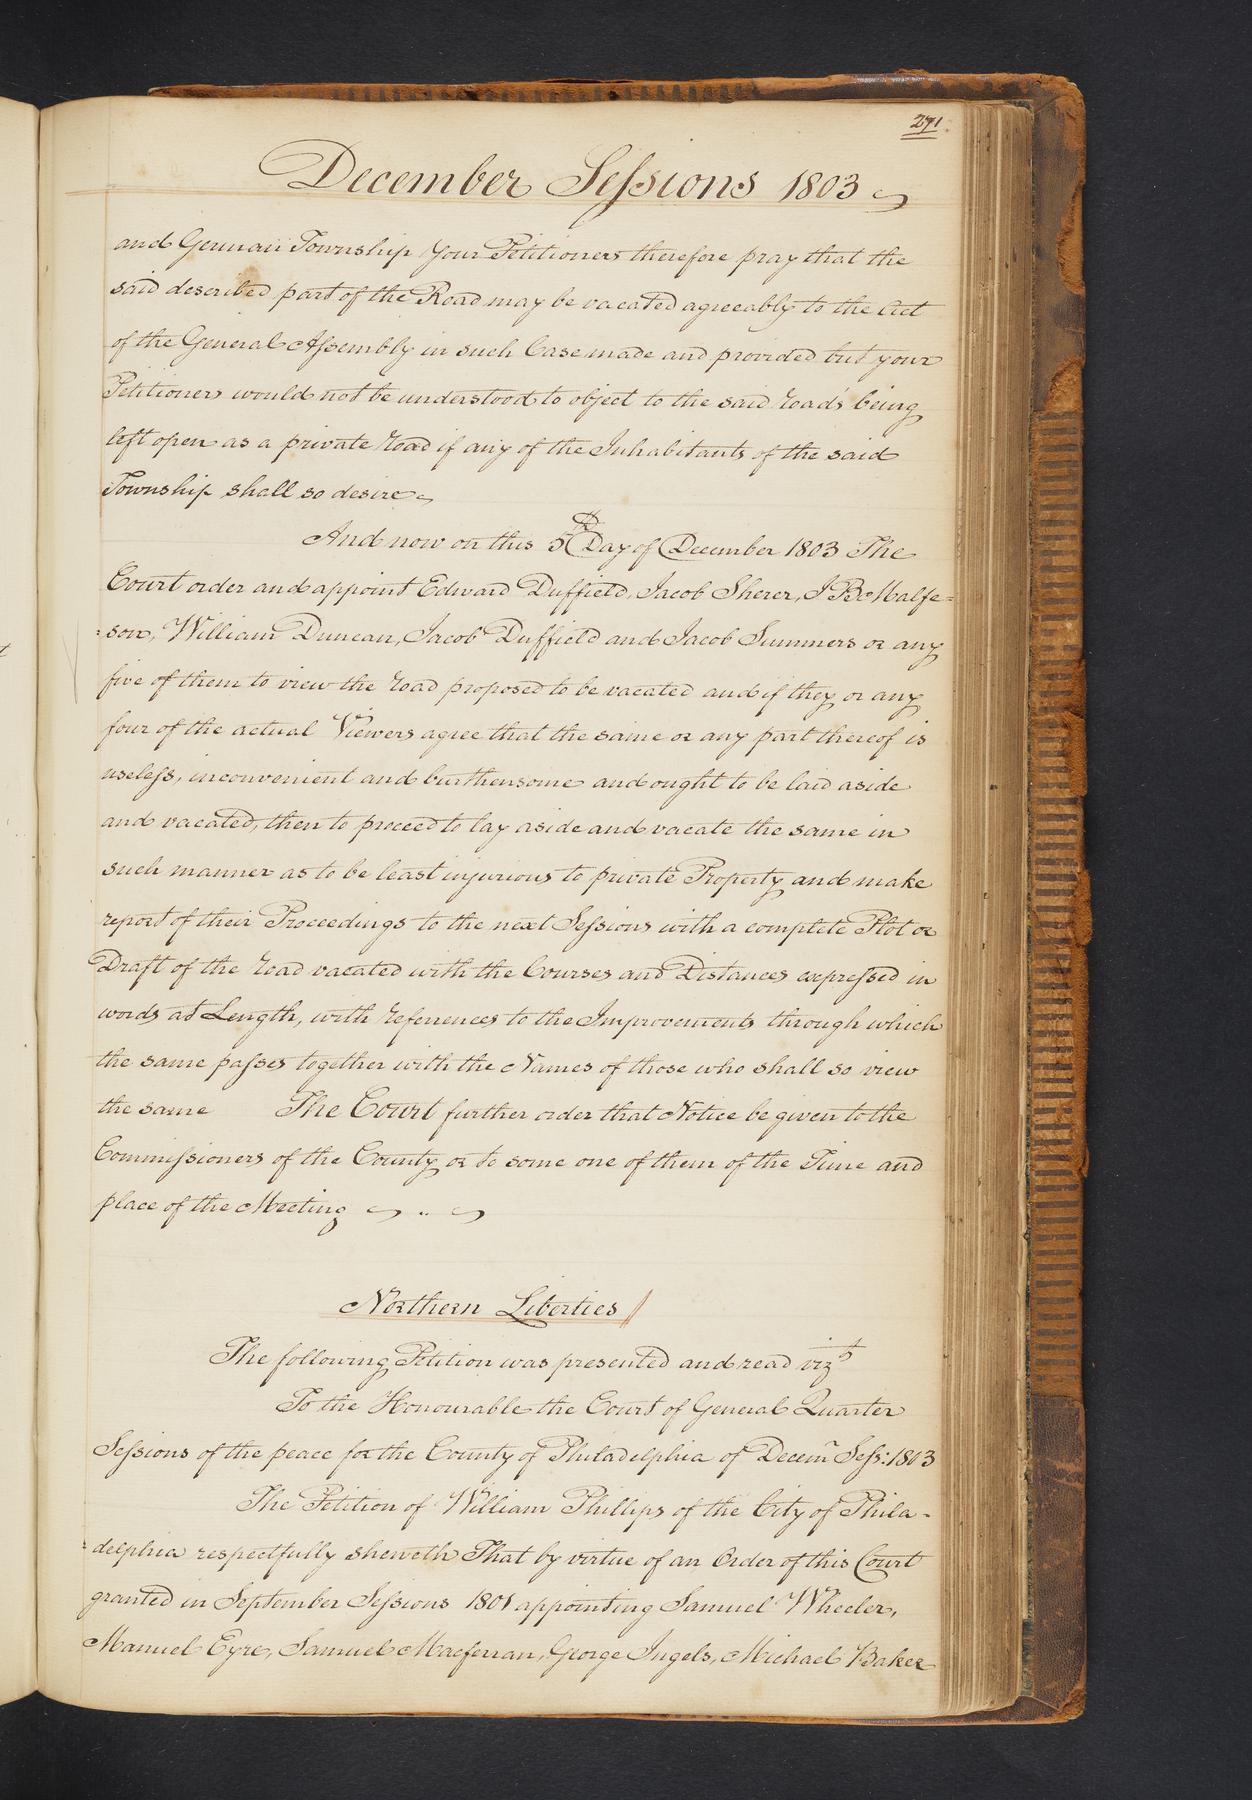 271
December Sessions 1803
and German Township Your Petitioners therefore pray that the
said described part of the Road may be vacated agreeably to the Act
of the General Assembly in such Case made and provided but your
Petitioners would not be understood to object to the said road's being
left open as a private road if any of the Inhabitants of the said
Township shall so desire
And now on this 5th Day of December 1803 The
Court order and appoint Edward Duffield, Jacob Sherer, J B Malfe=
=son, William Duncan, Jacob Duffield and Jacob Summers or any
five of them to view the road proposed to be vacated and if they or any
four of the actual Viewers agree that the same or any part thereof is
useless, inconvenient and burthensome and ought to be laid aside
and vacated, then to proceed to lay aside and vacate the same in
such manner as to be least injurious to private Property and make
report of their Proceedings to the next Sessions with a complete Plot or
Draft of the road vacated with the Courses and Distances expressed in
words at Length, with referrences to the Improvements through which
the same passes together with the Names of those who shall so view
the same The Court further order that Notice be given to the
Commissioners of the County or to some one of them of the Time and
place of the Meeting
Northern Liberties
The following Petition was presented and read vizt
To the Honourable the Court of General Quarter
Sessions of the peace for the County of Philadelphia of Decemr Sess: 1803
The Petition of William Phillips of the City of Phila-
=delphia respectfully sheweth That by virtue of an Order of this Court
granted in September Sessions 1801 appointing Samuel Wheeler,
Manuel Eyre, Samuel Macferran, George Ingels, Michael Baker